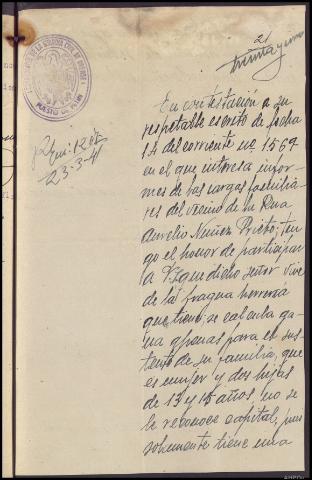 21
treinta y uno
COMANDANCIA DE LA GUARDIA CIVIL DE
PUESTO DE
23-3-41
En contestación a su
respetable escrito de fecha
14 del corriente nº 1569
en el que interesa infor-
mes de las cargas familia-
res del vecino de la Rua
Aurelio Nuñez Prieto; ten-
go el honor de participar
a V. que dicho señor vive
de la fragua herreria
que tiene, se calcula ga-
na apenas para el sus-
tento de su familia, que
es mujer y dos hijas
de 13 y 15 años, no se
le reconoce capital, pues
solamente tiene una